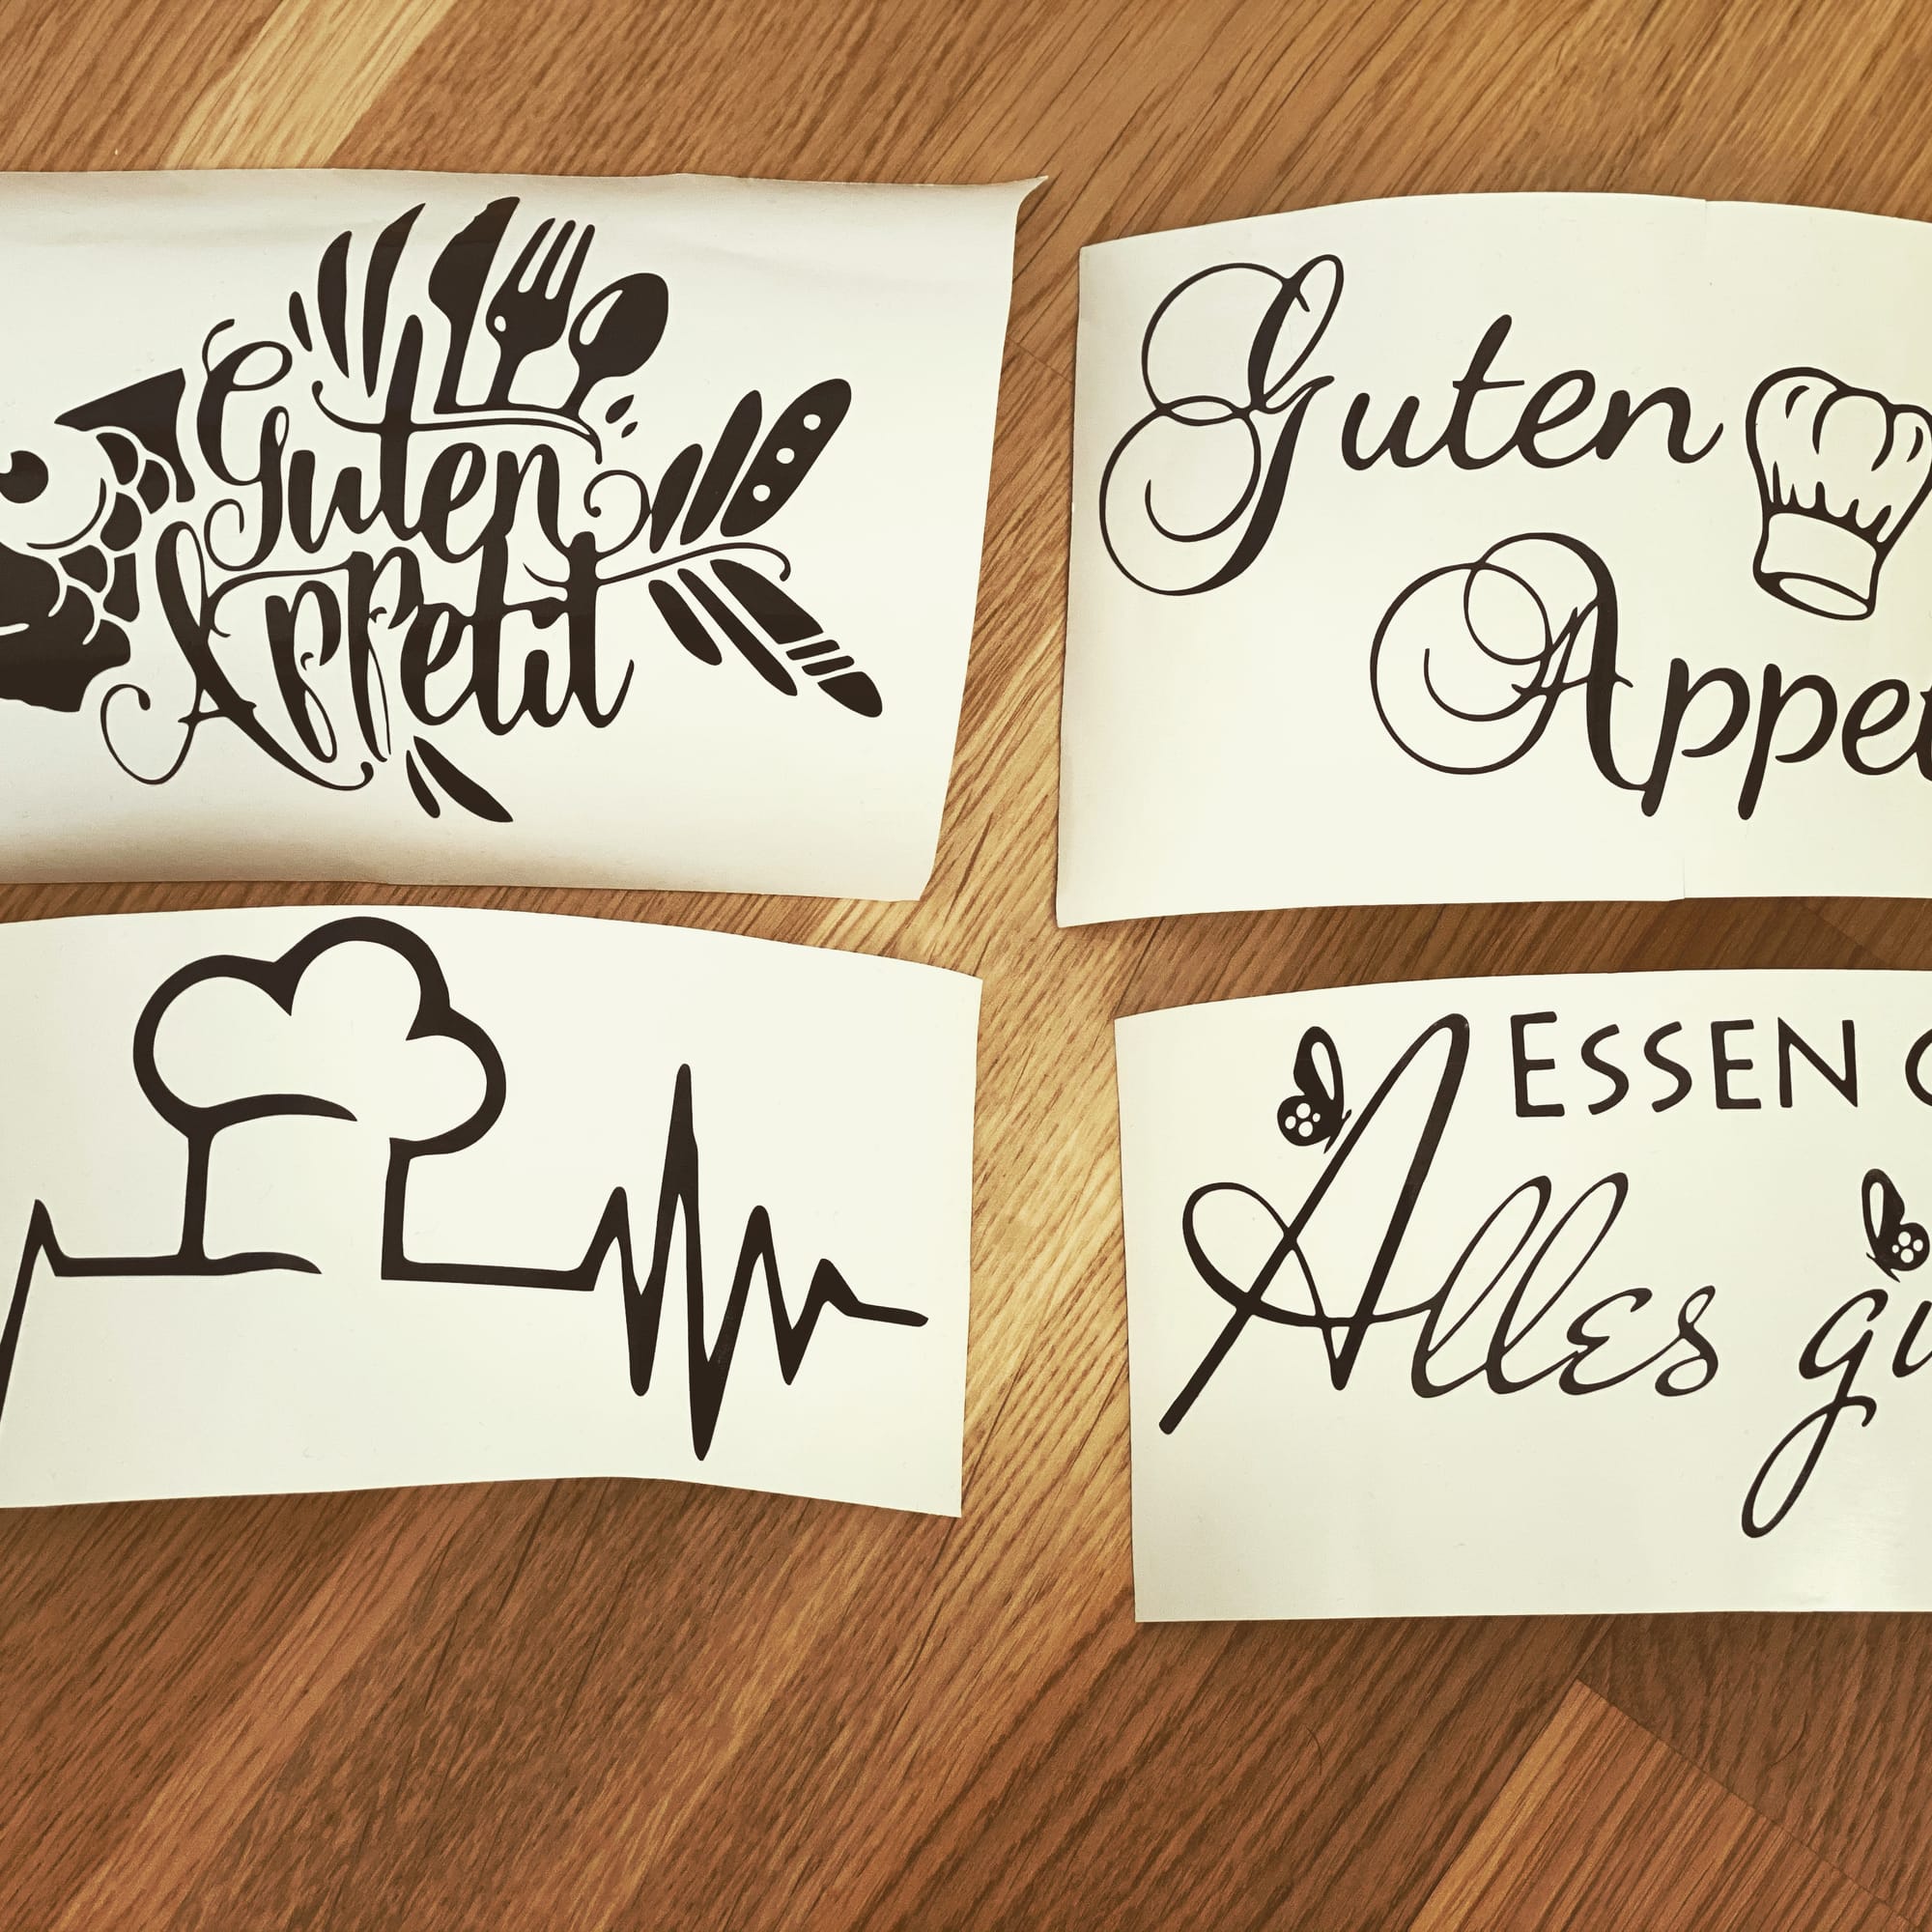 Guten
Appetit
Guten
Appet
ESSEN
Alles